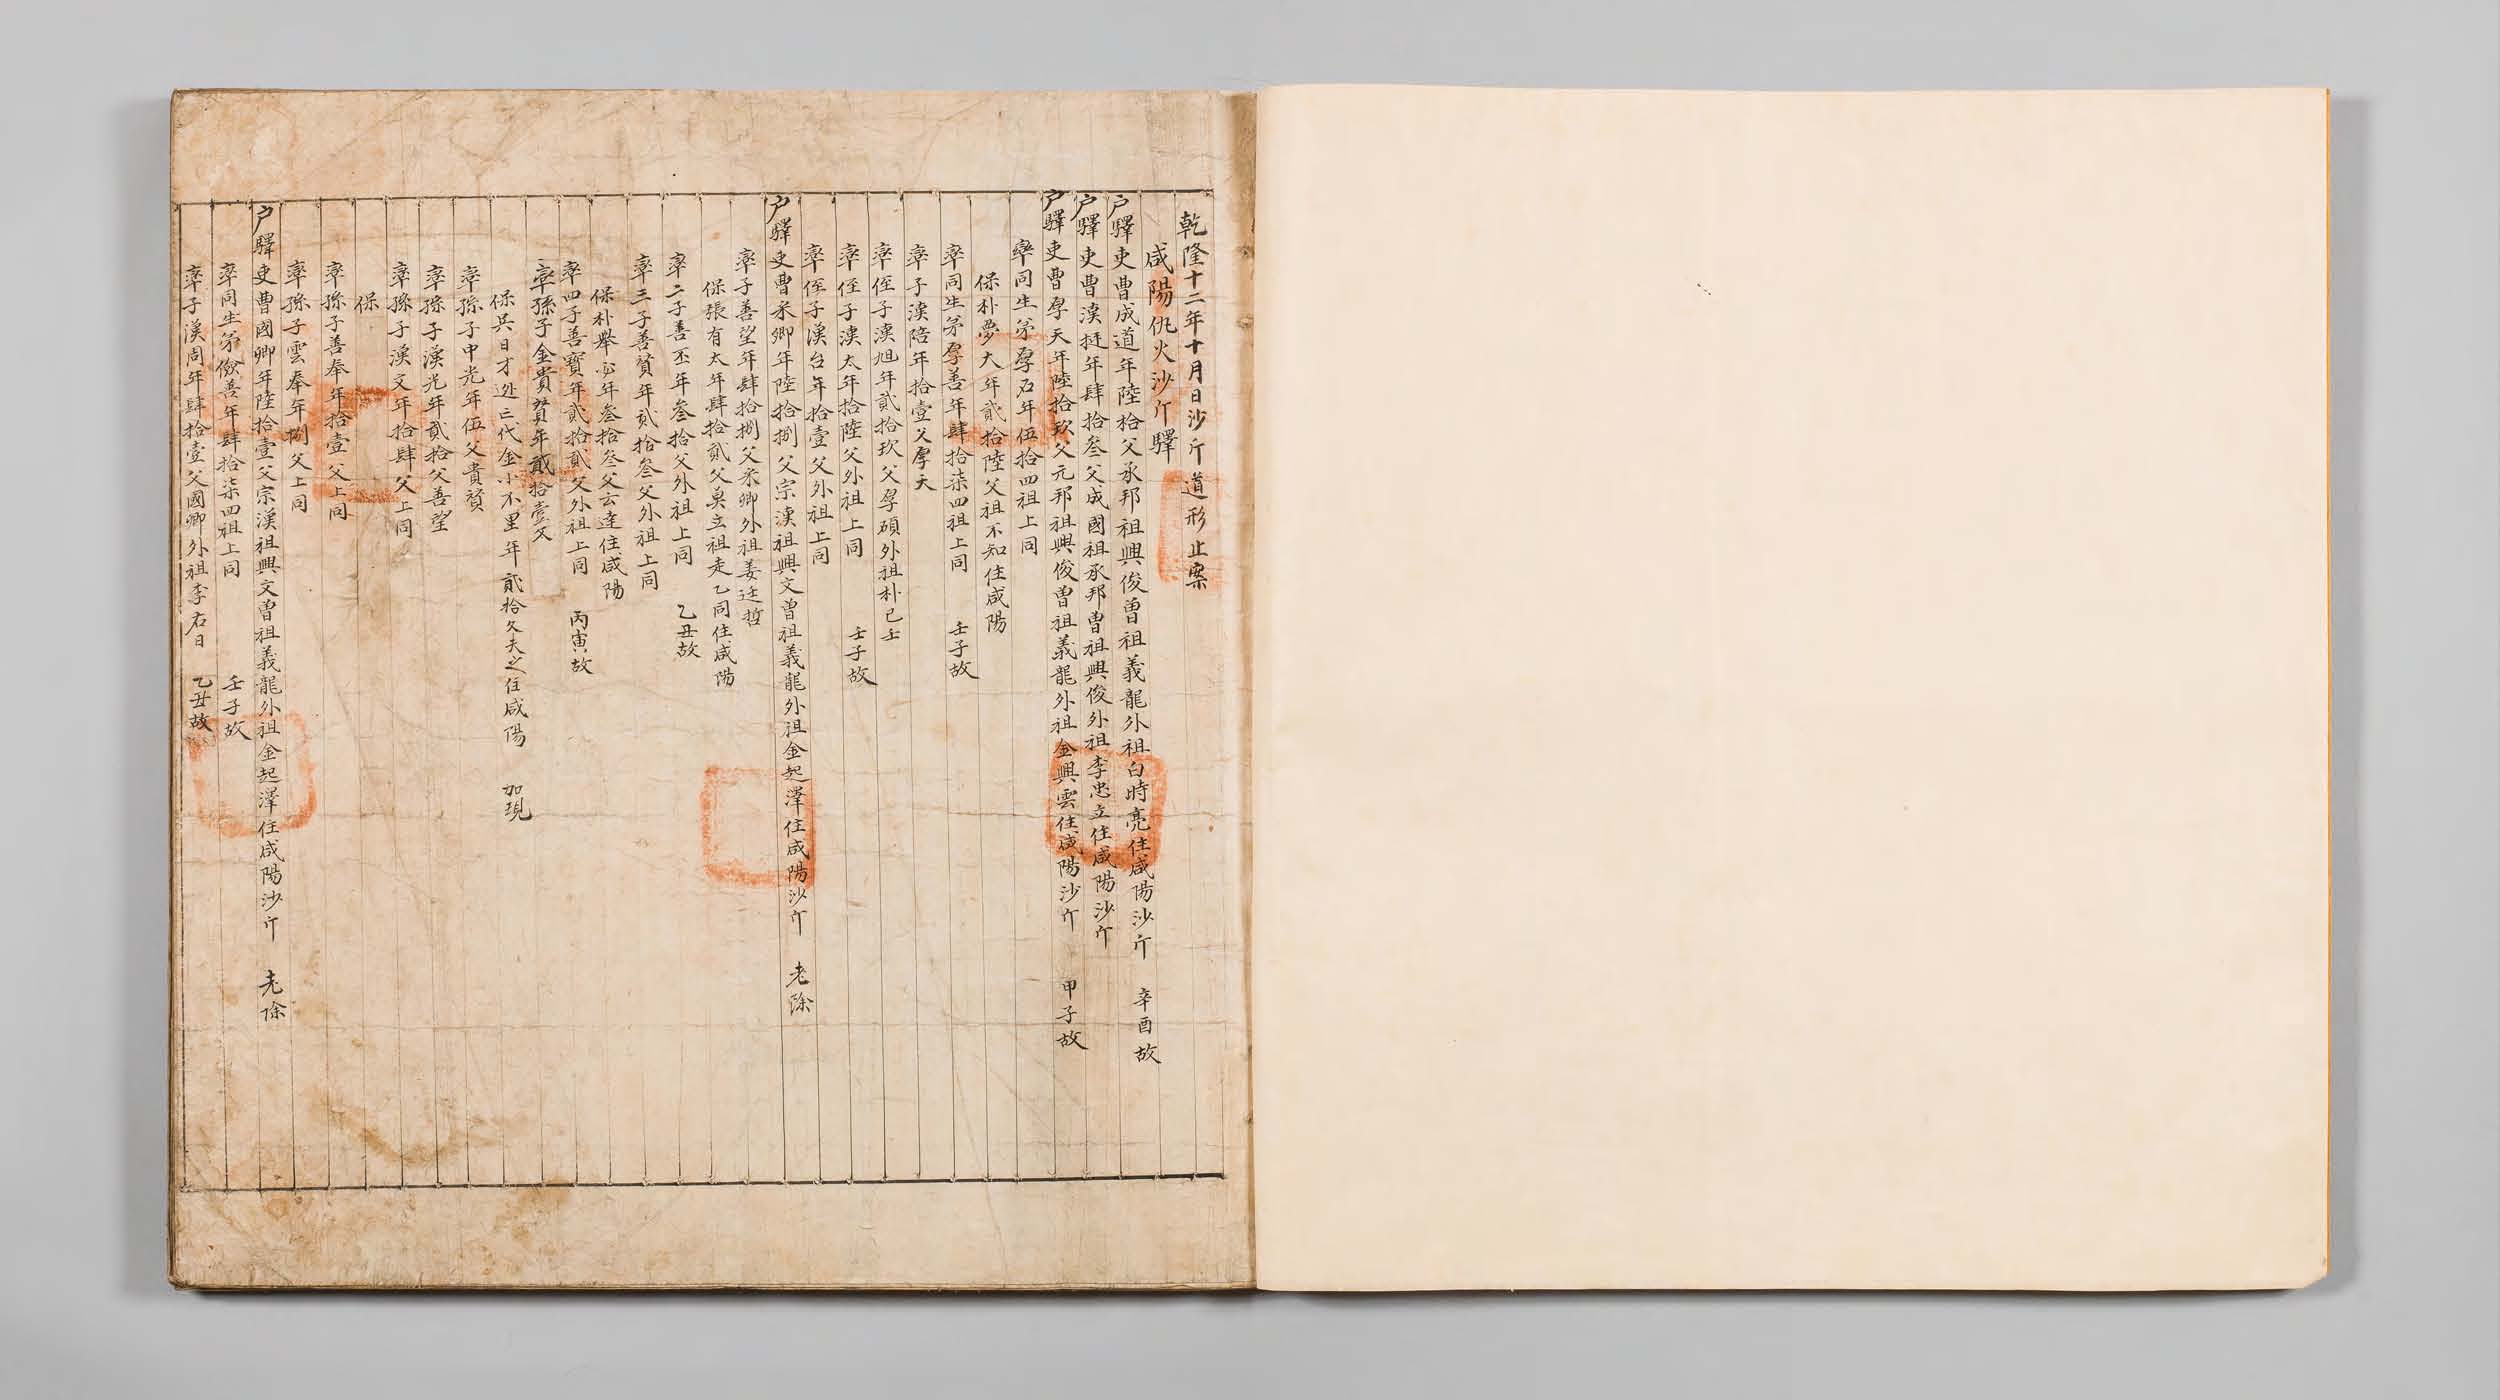 乾隆十二年十月日沙斤道形止案
咸陽仇火沙斤驛
戶驛吏曹成道年陸拾父承邦祖興俊曾祖義龍外祖白時亮住咸陽沙斤 辛酉故
戶驛吏曹漢挺年肆拾叁父成國祖承邦曾祖興俊外祖李忠立住咸陽沙斤
戶驛吏曹厚天年陸拾玖父元邦祖興俊曾祖義龍外祖金興雲住咸陽沙斤 甲子故
率同生弟厚石年伍拾四祖上同
保朴夢大年貳拾陸父祖不知住咸陽
率同生弟厚善年肆拾柒四祖上同 壬子故
率子漢陪年拾壹父厚天
率侄子漢旭年貳拾玖父厚碩外祖朴己壬
率侄子漢太年拾陸父外祖上同 壬子故
率侄子漢台年拾壹父外祖上同
戶驛吏曹米卿年陸拾捌父宗漢祖興文曾祖義龍外祖金起澤住咸陽沙斤 老除
率子善望年肆拾捌父米卿外祖姜廷哲
保張有太年肆拾貳父莫立祖走乙同住咸陽
率二子善丕年叁拾父外祖上同 乙丑故
率三子善贊年貳拾叁父外祖上同
保朴舉必年叁拾叁父云達住咸陽
率四子善寶年貳拾貳父外祖上同 丙寅故
率孫子金貴贊年貳拾壹父
保吳日才迯亡代金小不里年貳拾父夫之住咸陽 加現
率孫子中光年伍父貴贊
率孫子漢光年貳拾父善望
率孫子漢文年拾肆父上同
保
率孫子善奉年拾壹父上同
率孫子雲奉年捌父上同
戶驛吏曹國卿年陸拾壹父宗漢祖興文曾祖義龍外祖金起澤住咸陽沙斤 老除
率同生弟儉善年肆拾柒四祖上同 壬子故
率子漢周年肆拾壹父國卿外祖李右日 乙丑故